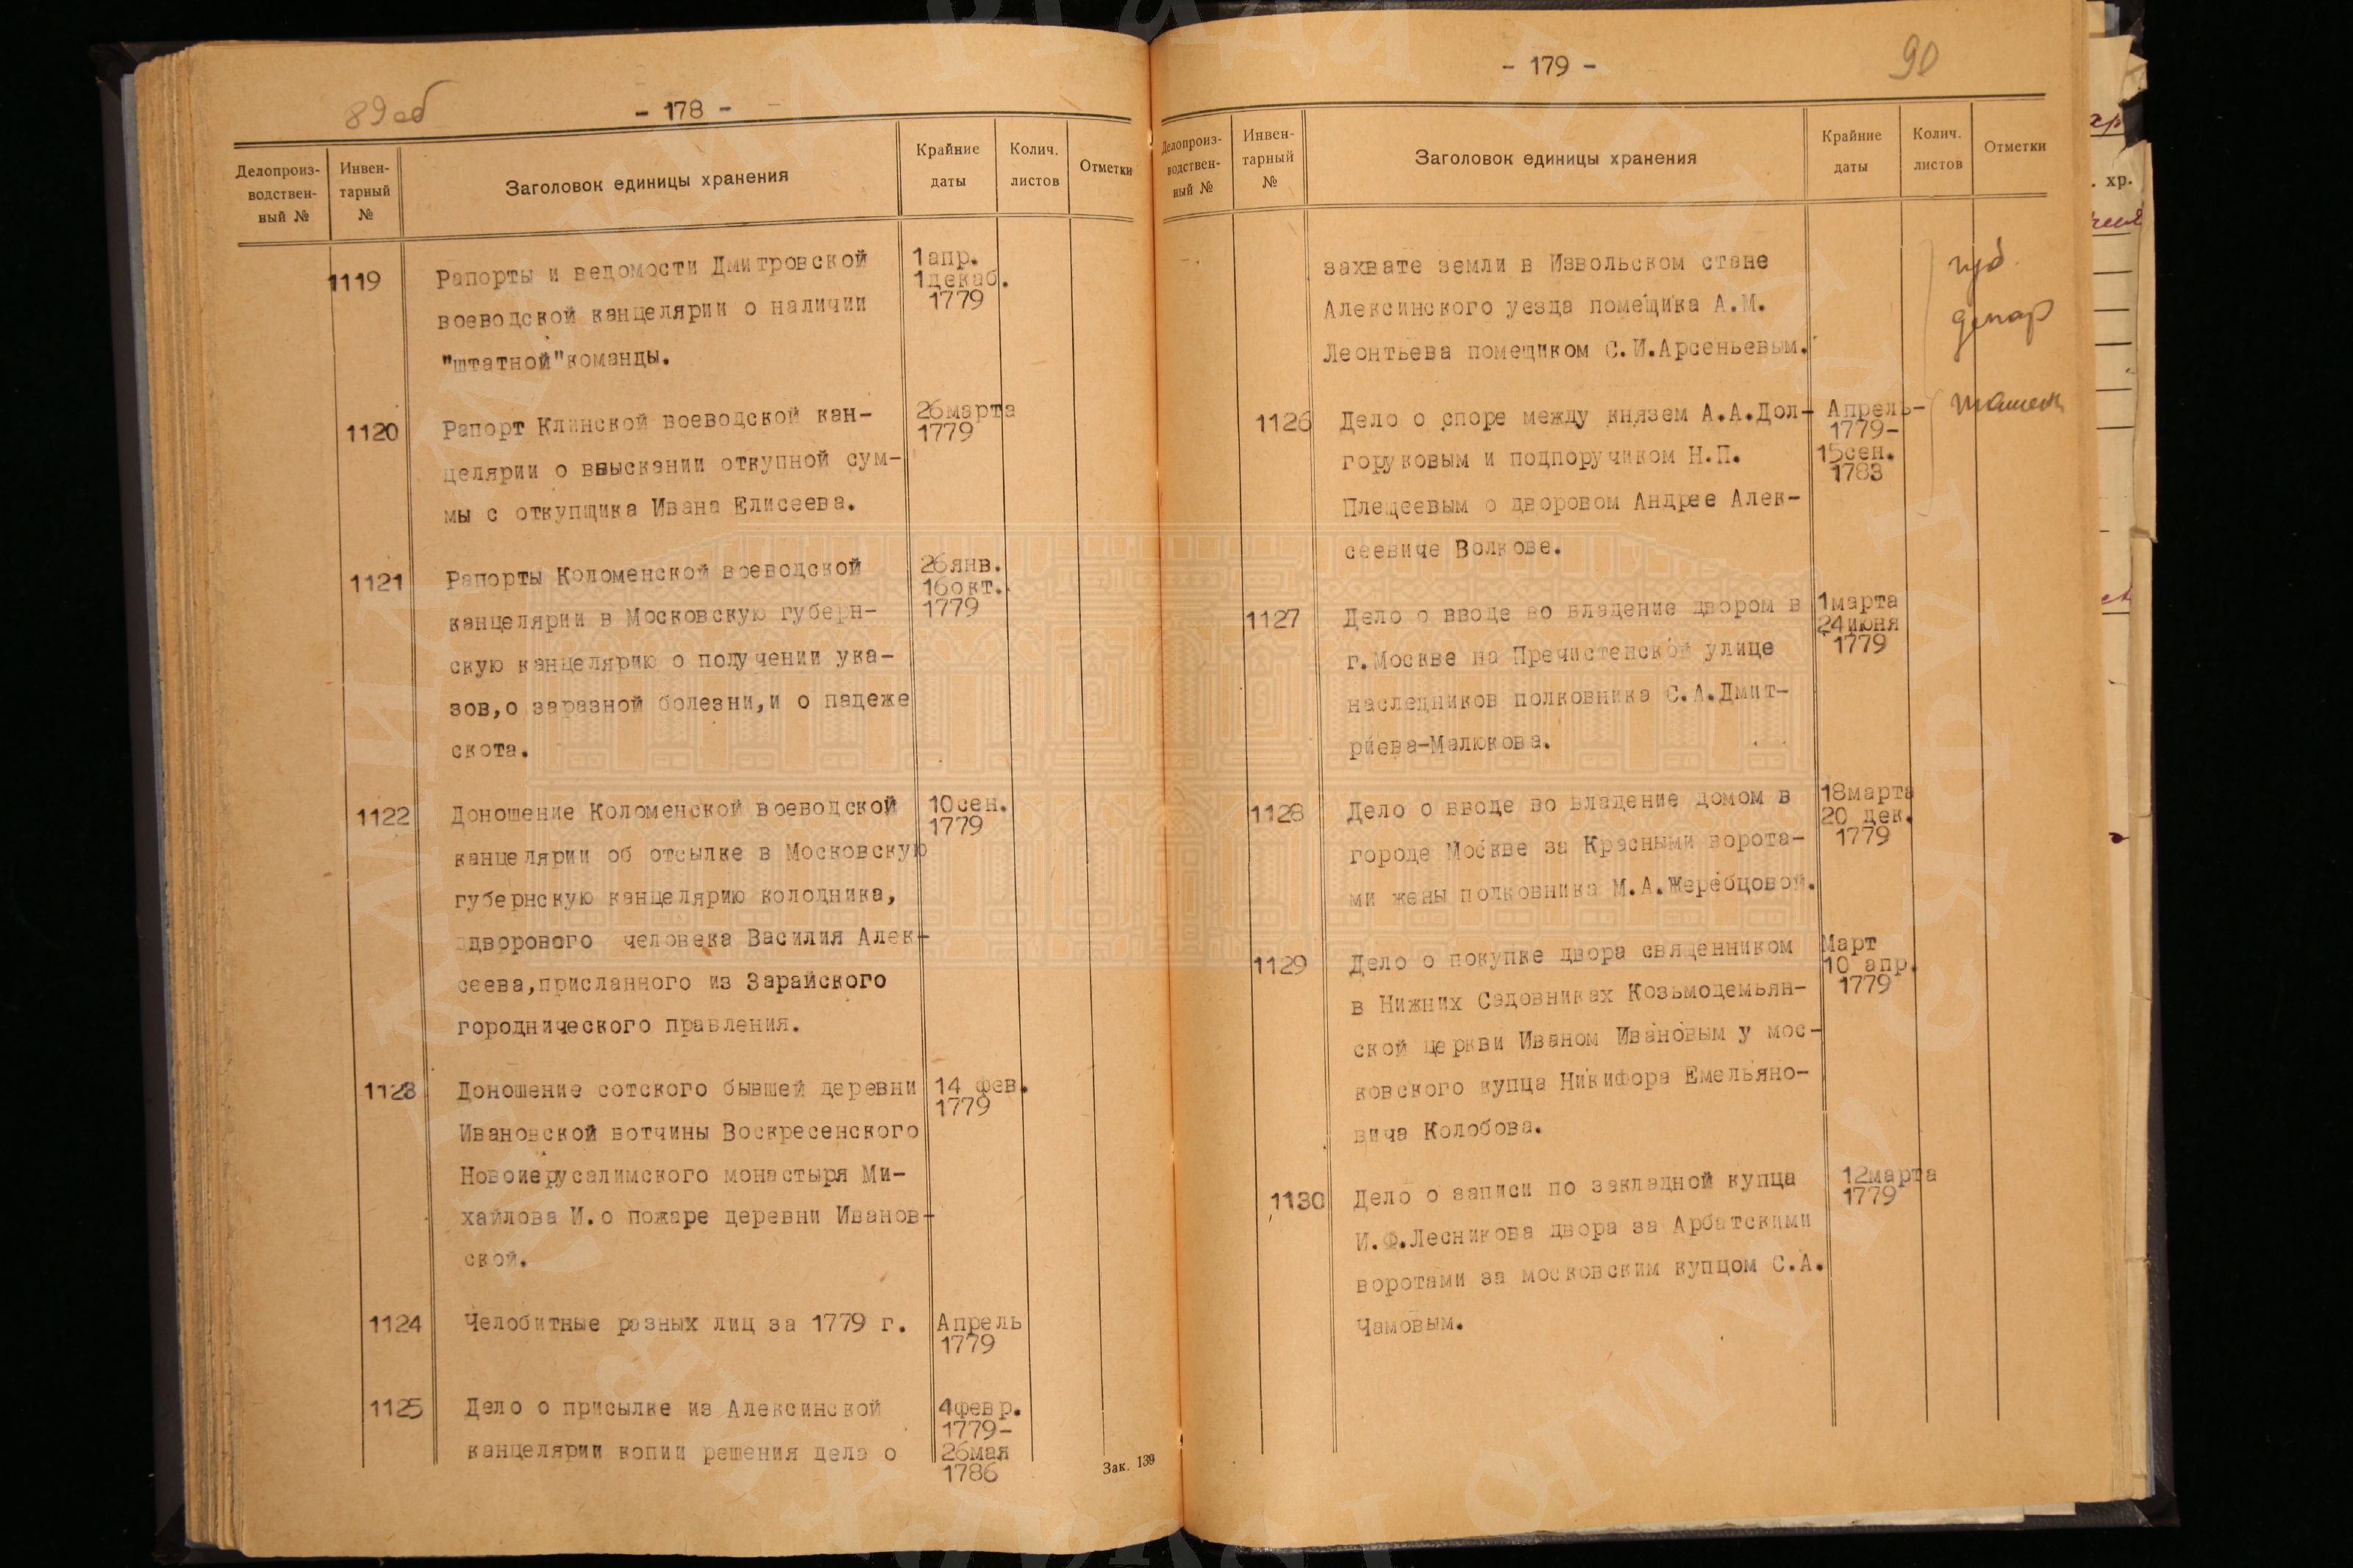 89об
- 178 -
Делопроиз-
водствен-
ный №
Инвен-
тарный
№
Заголовок единицы хранения
Крайние
даты
Колич.
листов
Отметки
1119
Рапорты и ведомости Дмитровской
воеводской канцелярии о наличии
"штатной"команды.
1апр.
1декаб.
1779
1120
Рапорт Клинской воеводской кан-
целярии о взыскании откупной сум-
мы с откупщика Ивана Елисеева.
26марта
1779
1121
Рапорты Коломенской воеводской
канцелярии в Московскую губерн-
скую канцелярию о получении ука-
зов,о заразной болезни,и о падеже
скота.
26янв.
16окт.
1779
1122
Доношение Коломенской воеводской
канцелярии об отсылке в Московскую
губернскую канцелярию колодника,
дворового человека Василия Алек-
сеева,присланного из Зарайского
городнического правления.
10сен.
1779
1123
Доношение сотского бывшей деревни
Ивановской вотчины Воскресенского
Новоиерусалимского монастыря Ми-
хайлова И.о пожаре деревни Иванов-
ской.
14 фев.
1779
1124
Челобитные разных лиц за 1779 г.
Апрель
1779
1125
Дело о присылке из Алексинской
канцелярии копии решения дела о
4февр.
1779-
26мая
1786
Зак. 139
- 179 -
90
Делопроиз-
водствен-
ный №
Инвен-
тарный
№
Заголовок единицы хранения
Крайние
даты
Колич.
листов
Отметки
захвате земли в Извольском стане
Алексинского уезда помещика А.М.
Леонтьева помещиком С.И.Арсеньевым.
1126
Дело о споре между князем А.А.Дол-
горуковым и подпоручиком Н.П.
Плещеевым о дворовом Андрее Алек-
сеевиче Волкове.
Апрель-
1779-
15сен.
1783
1127
Дело о вводе во владение двором в
г.Москве на Пречистенской улице
наследников полковника С.А.Дмит-
риева-Малюкова.
1марта
24июня
1779
1128
Дело о вводе во владение домом в
городе Москве за Красными ворота-
ми жены полковника М.А.Жеребцовой.
18марта
20 дек.
1779
1129
Дело о покупке двора священником
в Нижних Садовниках Козьмодемьян-
ской церкви Иваном Ивановым у мос-
ковского купца Никифора Емельяно-
вича Колобова.
Март
10 апр.
1779
1130
Дело о записи по закладной купца
И.Ф.Лесникова двора за Арбатскими
воротами за московским купцом С.А.
Чамовым.
12марта
1779
. хр.